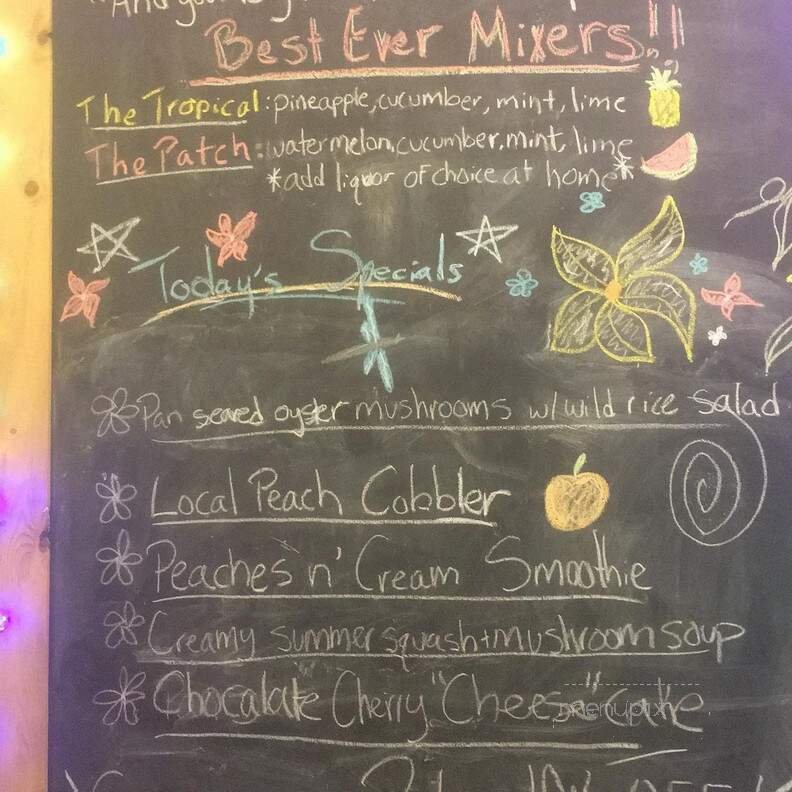 Best Ever Mixers!!
The Tropical: pineapple, cucumber, mint, lime
The Patch: watermelon, cucumber, mint, lime
*add liquor of choice at home*
Today's Specials
Pan seared oyster mushrooms w/ wild rice salad
Local Peach Cobbler
Peaches n' Cream Smoothie
Creamy summer squash + mushroom soup
Chocalate Cherry "Cheese" cake